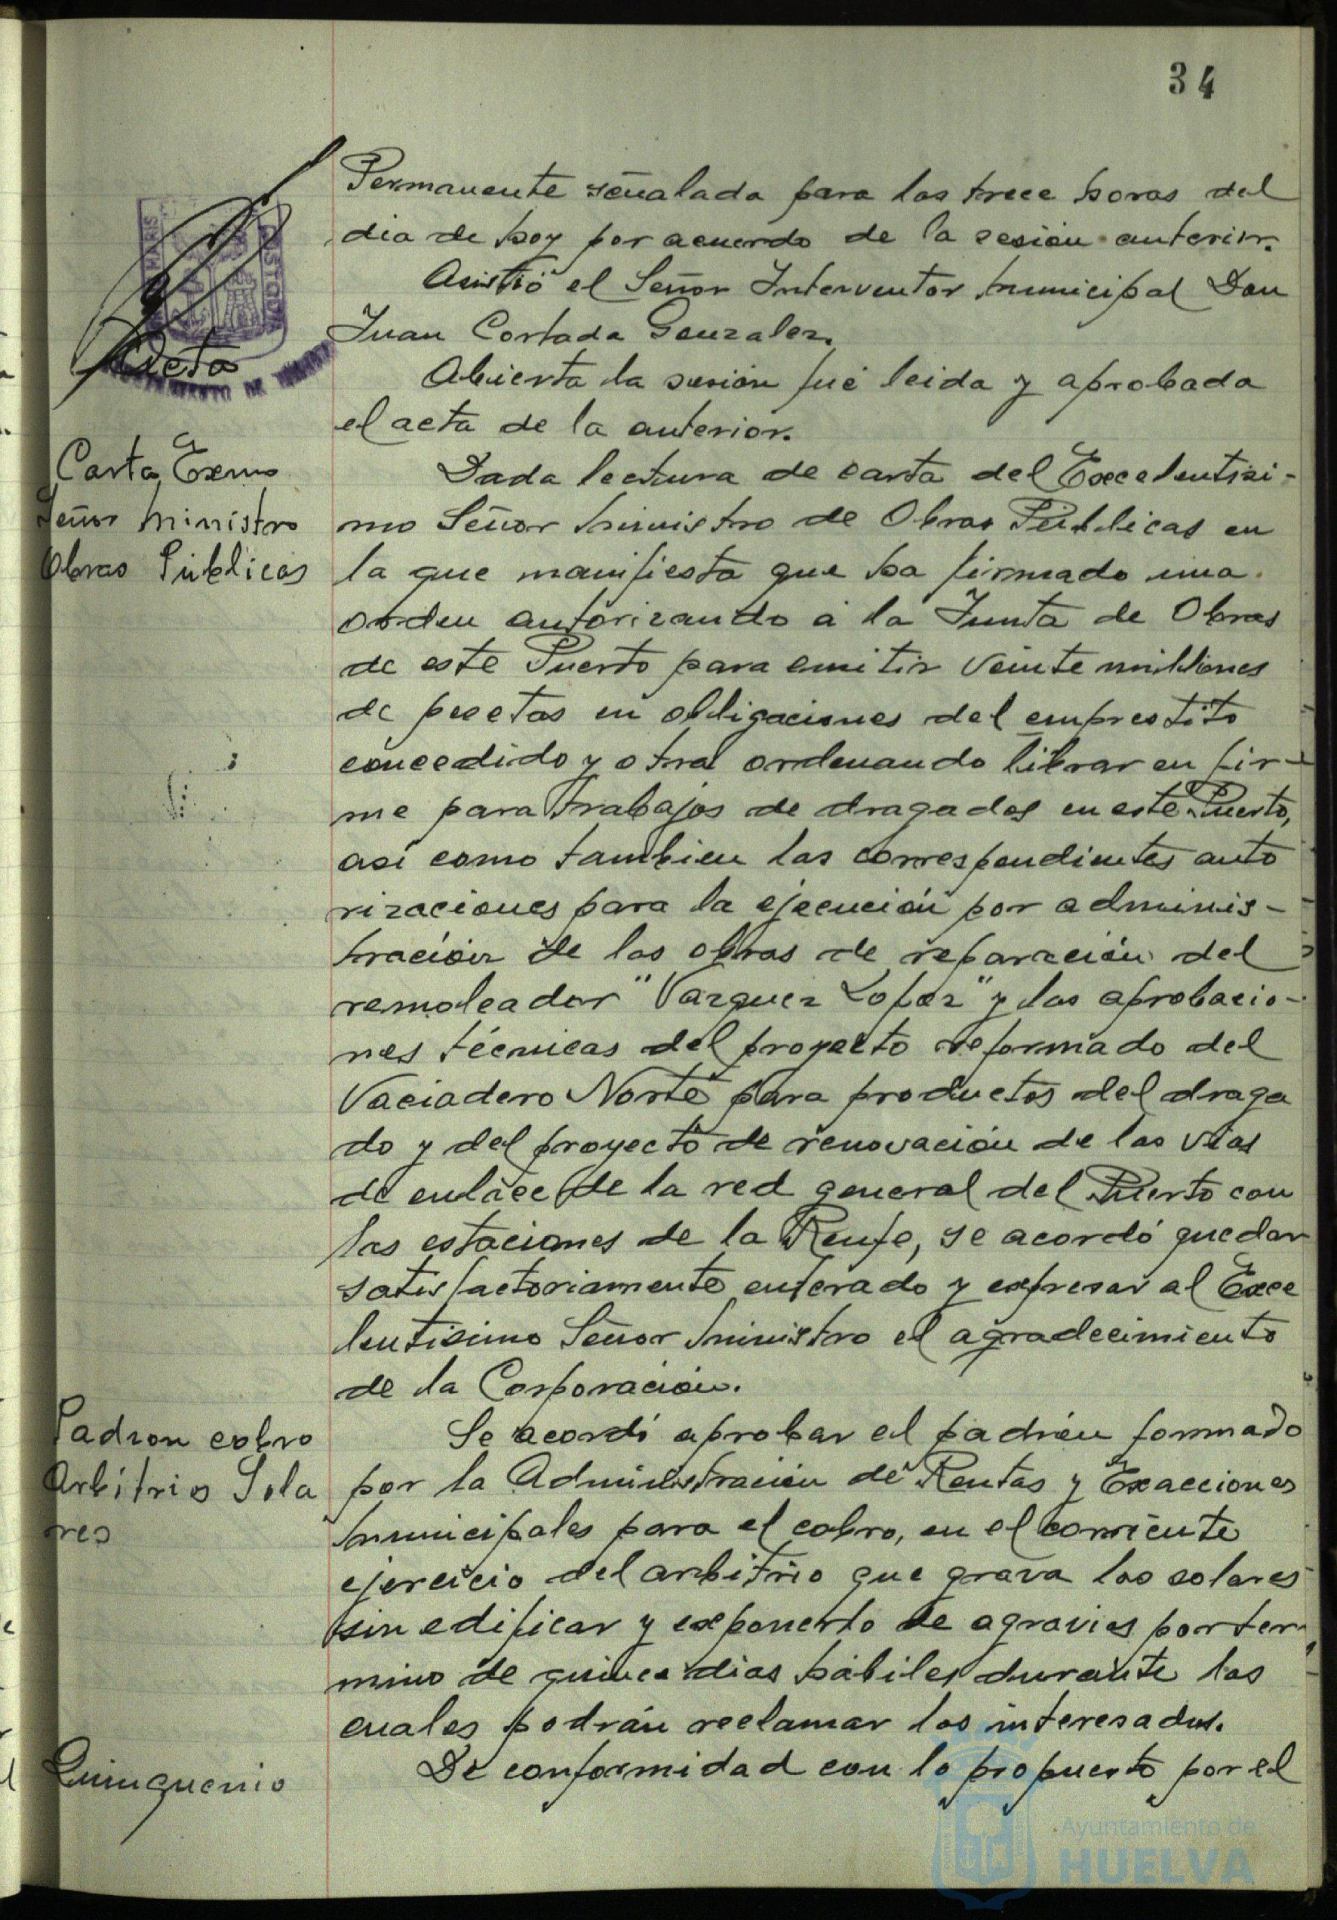 34
Permanente señalada para las trece horas del
dia de hoy por acuerdo de la sesión anterior.
Asistió el Señor Interventor Municipal Don
Juan Cortada Gonzalez.
Acta
Abierta la sesión fué leida y aprobada
el acta de la anterior.
Carta Excmo
Señor Ministro
Obras Públicas
Dada lectura de carta del Excelentisi-
mo Señor Ministro de Obras Públicas en
la que manifiesta que ha firmado una
orden autorizando a la Junta de Obras
de este Puerto para emitir veinte millones
de pesetas en obligaciones del emprestito
concedido y otra ordenando librar en fir-
me para trabajos de dragados en este Puerto,
asi como tambien las correspondientes auto
rizaciones para la ejecución por adminis-
tración de las obras de reparación del
remolcador "Vazquez Lopez" y las aprobacio-
nes técnicas del proyecto reformado del
Vaciadero Norte para productos del draga
do y del proyecto de renovación de las vias
de enlace de la red general del Puerto con
las estaciones de la Renfe, se acordó quedar
satisfactoriamente enterado y expresar al Exce
lentisimo Señor Ministro el agradecimiento
de la Corporación.
Padron cobro
Arbitrio Sola
res
Se acordó aprobar el padrón formado
por la Administración de Rentas y Exacciones
Municipales para el cobro, en el corriente
ejercicio del arbitrio que grava los solares
sin edificar y exponerlo de agravios por ter
mino de quince dias hábiles durante los
cuales podrán reclamar los interesados.
Quinquenio
De conformidad con lo propuesto por el
Ayuntamiento de
HUELVA